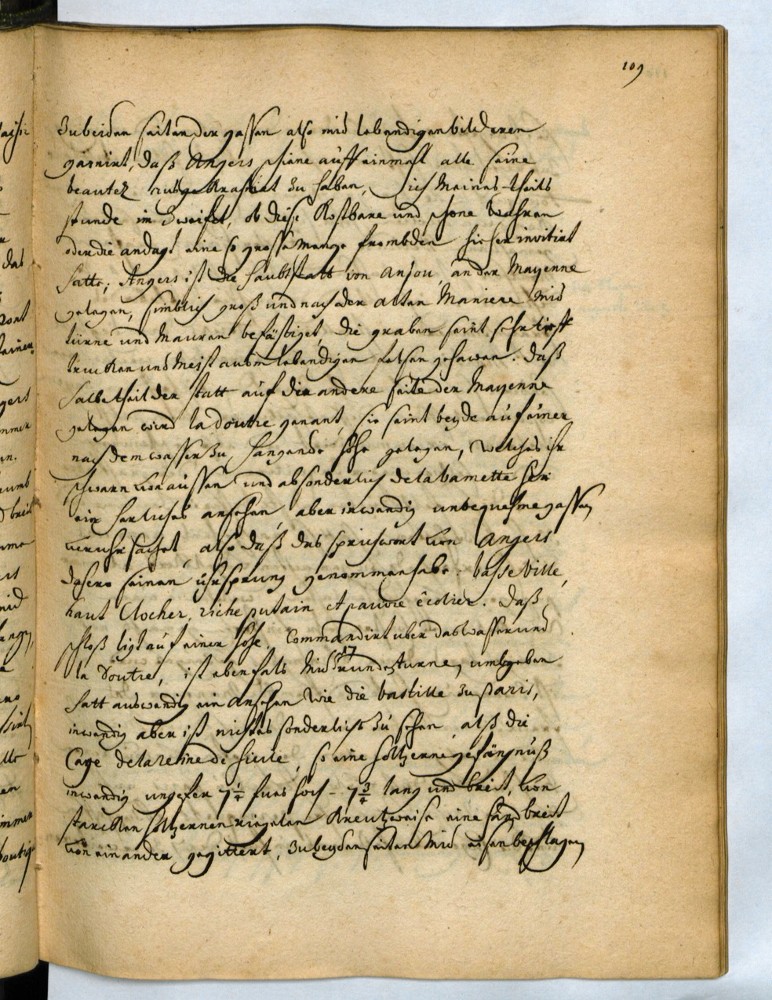 109
zu beiden seiten der gassen also mit lebendigen bilderen
garnirt, daß Angers schiene auff einmahl alle seine
beautez zu haben, ich meines theils
stunde im zweifel, ob diese kostbare und schöne wahren
oder die andagt eine so grosse mange frembden hieher invitirt
hatte; Angers ist die haubtstatt von Anjou an der Mayenne
gelegen, zimblich groß und nach der alten Maniere mit
türne und Mauren befästiget, die graben seint sehr tieff
trucken und meist aus lebendigen felsen gehawen. daß
halbe theil der statt auf die andere seite der Mayenne
gelegen wird la doutre genant, sie seint beyde auf einer
nach dem wasser zu hangende höhe gelegen, welches ihr
von aussen und absonderlich de la bamette her
ein herliches ansehen aber inwendig unbequehme gassen
veruhrsachet, also daß das sprichwort von Angers
dahero seinen uhrsprung genommen habe: basse ville,
haut Clocher, riche putain et pauvre écolier. daß
schloß ligt auf einer höhe, commandirt uber das wasser und
la Doutre, ist ebenfals mit 17 runde türne umbgeben
hatt auswendig ein ansehen wie die bastille zu paris,
inwendig aber ist nichtes sonderlichs zu sehen, alß die
Cage de la reine de Sicile, so eine höltzerne gefängnuß
inwendig ungefer 7 1/4 fues hoch - 7 3/4 lang und breit, von
starcken höltzernen riegelen kreutzweise eine hand breit
von einander gegittert, zu beyden seiten mit eisen beschlagen